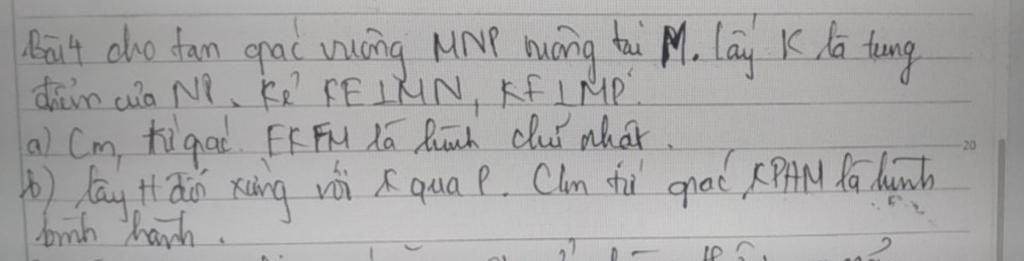 Bài 4 cho tam giác vuông MNP vuông tại M. Lấy K là trung
điểm của NP. Kẻ KE⊥MN, KF⊥MP.
a) Cm, tứ giác EKFM là hình chữ nhật.
b) Lấy H đối xứng với K qua P. Cm tứ giác KPHM là hình
bình hành.